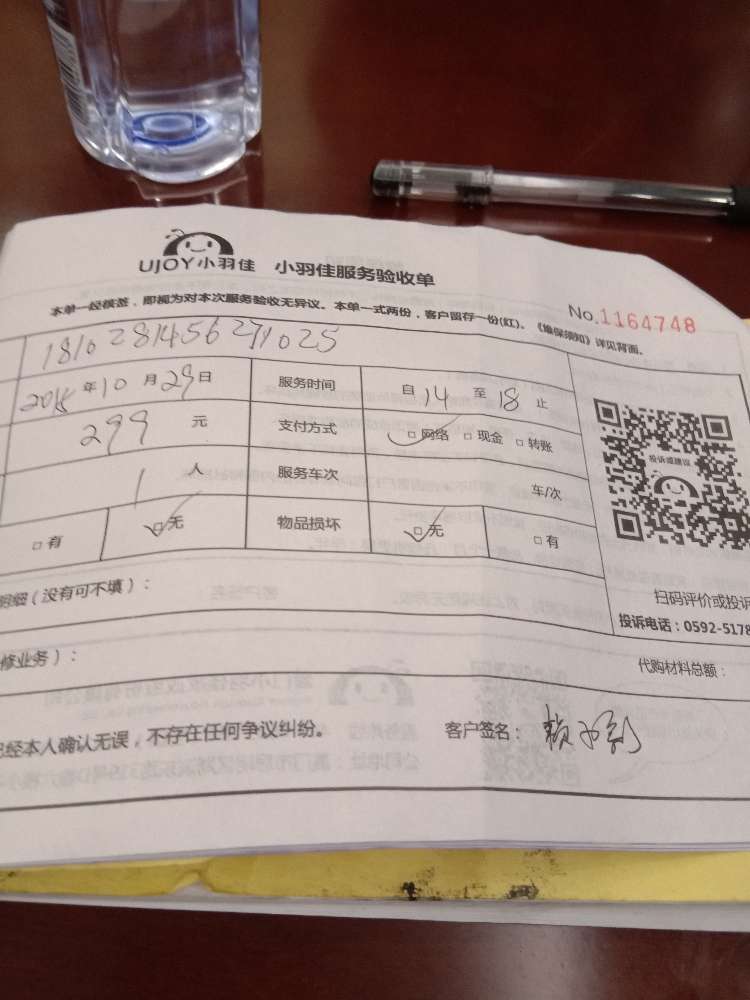 UJOY小羽佳 小羽佳服务验收单
本单一经核签，即视为对本次服务验收无异议。本单一式两份，客户留存一份(红)。《维保须知》详见背面。
No.1164748
181028145627
2018年10月29日 服务时间 自14至18止
299元 支付方式 □网络 □现金 □转账
1人 服务车次 车/次
□有 □无 物品损坏 □无 □有
投诉或建议
明细（没有可不填）：
扫码评价或投诉
投诉电话：0592-5178
修业务）： 代购材料总额：
已经本人确认无误，不存在任何争议纠纷。 客户签名：